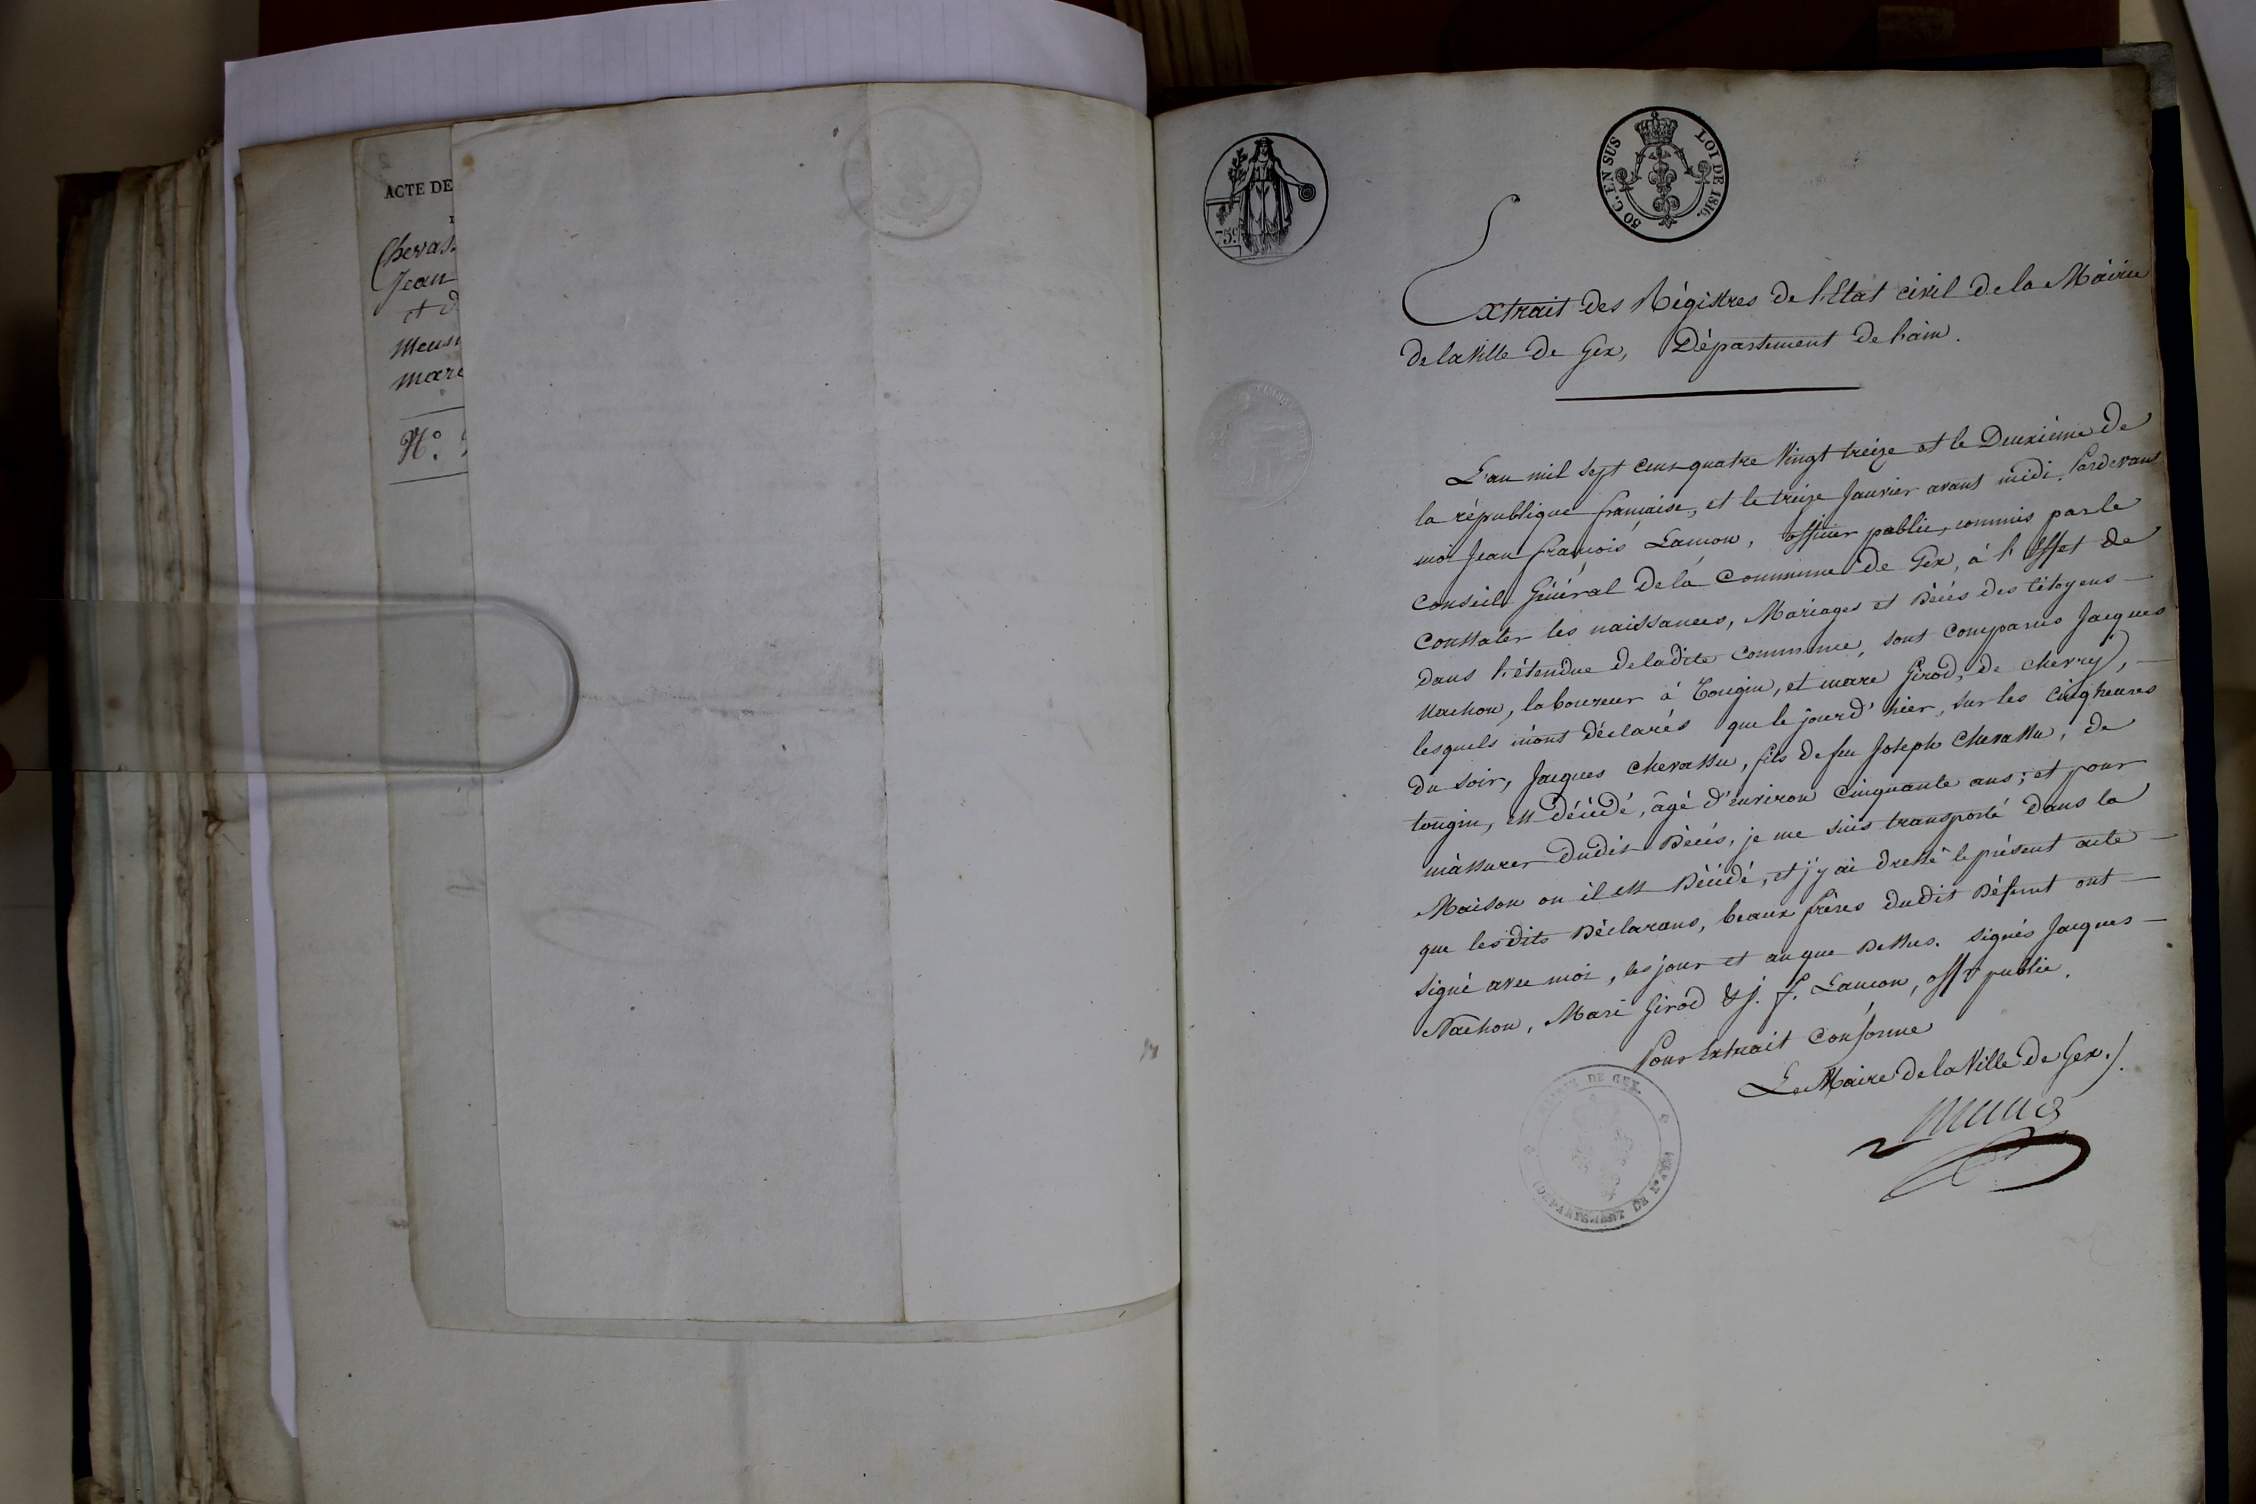 ACTE DE
Chevass
Jean
et d
meun
mari
N.°
75 c.
50 C. EN SUS LOI DE 1816.
Extrait des Régistres de l'Etat civil de la Mairie
de la Ville de Gex, Département de l'ain.
L'an mil sept cens quatre Vingt treize et le Deuxieme de
la république française, et le treize Janvier avant midi, Pardevant
moi Jean françois Lancon, officier public, commis par le
Conseil Général de la Commune de Gex, à l'effet de
Constater les naissances, Mariages et Décés des Citoyens
dans l'étendue de ladite Commune, sont comparus Jacques
Nachon, laboureur à Tougin, et marc Girod, de chevry,
lesquels m'ont déclarés que le jourd'hier, sur les cinq heures
du soir, Jacques Chevassu, fils de feu Joseph Chevassu, de
tougin, est décédé, âgé d'environ Cinquante ans; et pour
m'assurer dudit Décés, je me suis transporté dans la
Maison ou il est Décédé, et j'y ai dressé le présent acte
que lesdits Déclarans, beaux frères dudit Défunt ont
signé avec moi, les jour et an que Dessus. signés Jacques
Nachon, Marc Girod & J. f. Lancon, off.r public.
Pour Extrait Conforme
Le Maire de la Ville de Gex./.
DE GEX.
DEPARTEMENT DE L'AIN